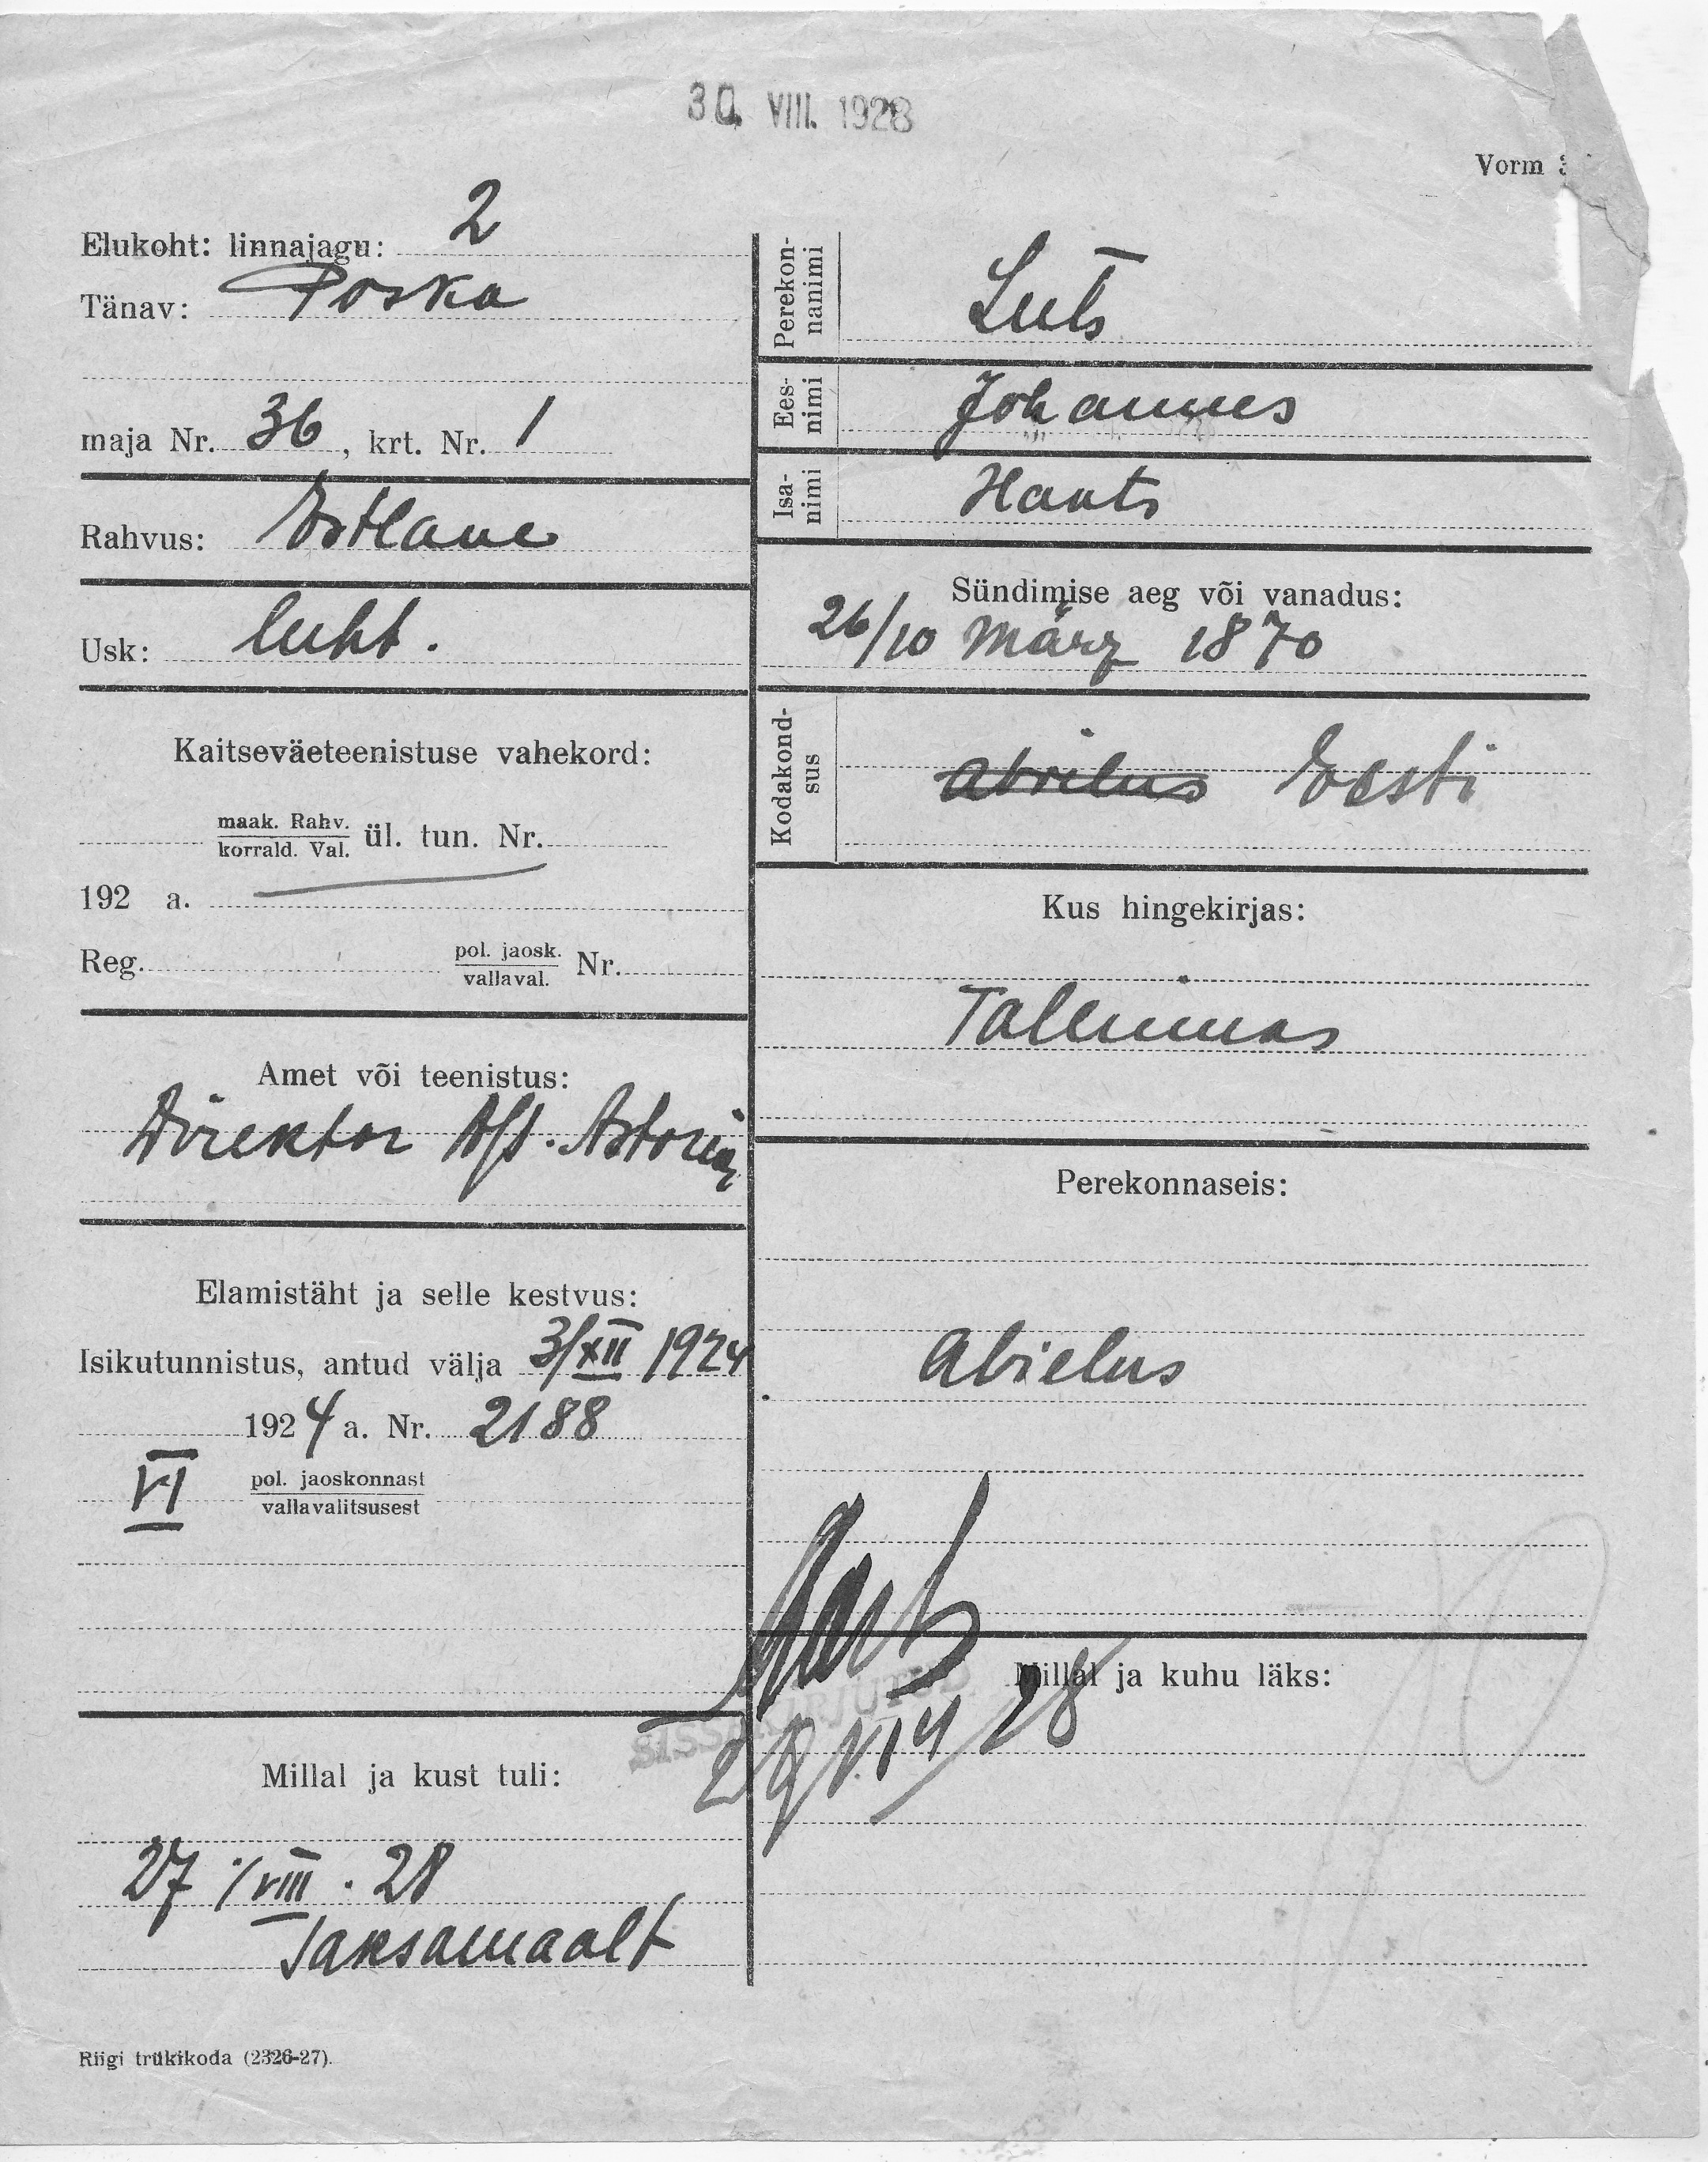 30. VIII. 1928
Vorm
Elukoht: linnajagu: 2
Tänav: Poska
maja Nr. 36, krt. Nr. 1
Rahvus: Estlane
Usk: luht.
Kaitseväeteenistuse vahekord:
maak. Rahv.
korrald. Val. ül. tun. Nr.
192 a.
Reg. pol. jaosk.
vallaval. Nr.
Amet või teenistus:
Direktor A/S. Astoria
Elamistäht ja selle kestvus:
Isikutunnistus, antud välja 3/XII 1924
1924 a. Nr. 2188
VI pol. jaoskonnast
vallavalitsusest
Millal ja kust tuli:
27./VIII. 28
Saksamaalt
Riigi trükikoda (2326-27).
Perekon-
nanimi Luts
Ees-
nimi Johannes
Isa-
nimi Hants
Sündimise aeg või vanadus:
26/10 März 1870
Kodakond-
sus abielus Eesti
Kus hingekirjas:
Tallinnas
Perekonnaseis:
Abielus
SISSEKIRJUTUD
Millal ja kuhu läks: